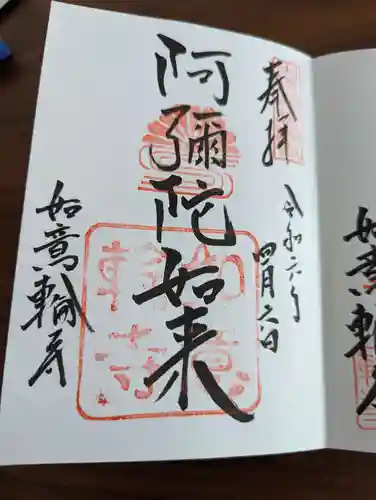 奉拝
令和六年
四月六日
阿彌陀如来
如意輪寺
如意輪寺